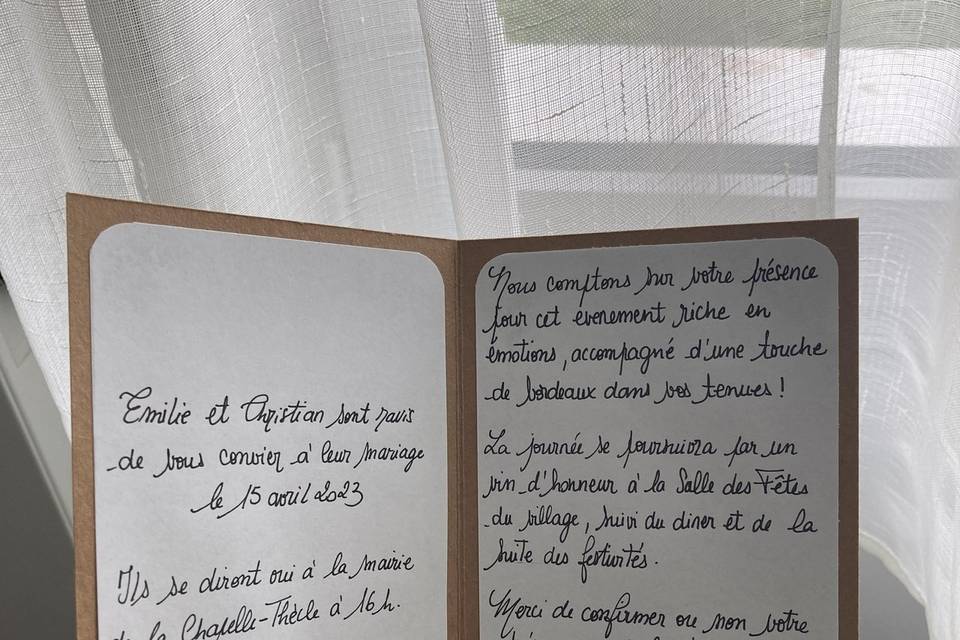 Emilie et Christian sont ravis
de vous convier à leur mariage
le 15 avril 2023
Ils se diront oui à la mairie
de la Chapelle-Thècle à 16h.
Nous comptons sur votre présence
pour cet évenement riche en
émotions, accompagné d'une touche
de bordeaux dans vos tenues !
La journée se poursuivra par un
vin d'honneur à la Salle des Fêtes
du village, suivi du diner et de la
suite des festivités.
Merci de confirmer ou non votre